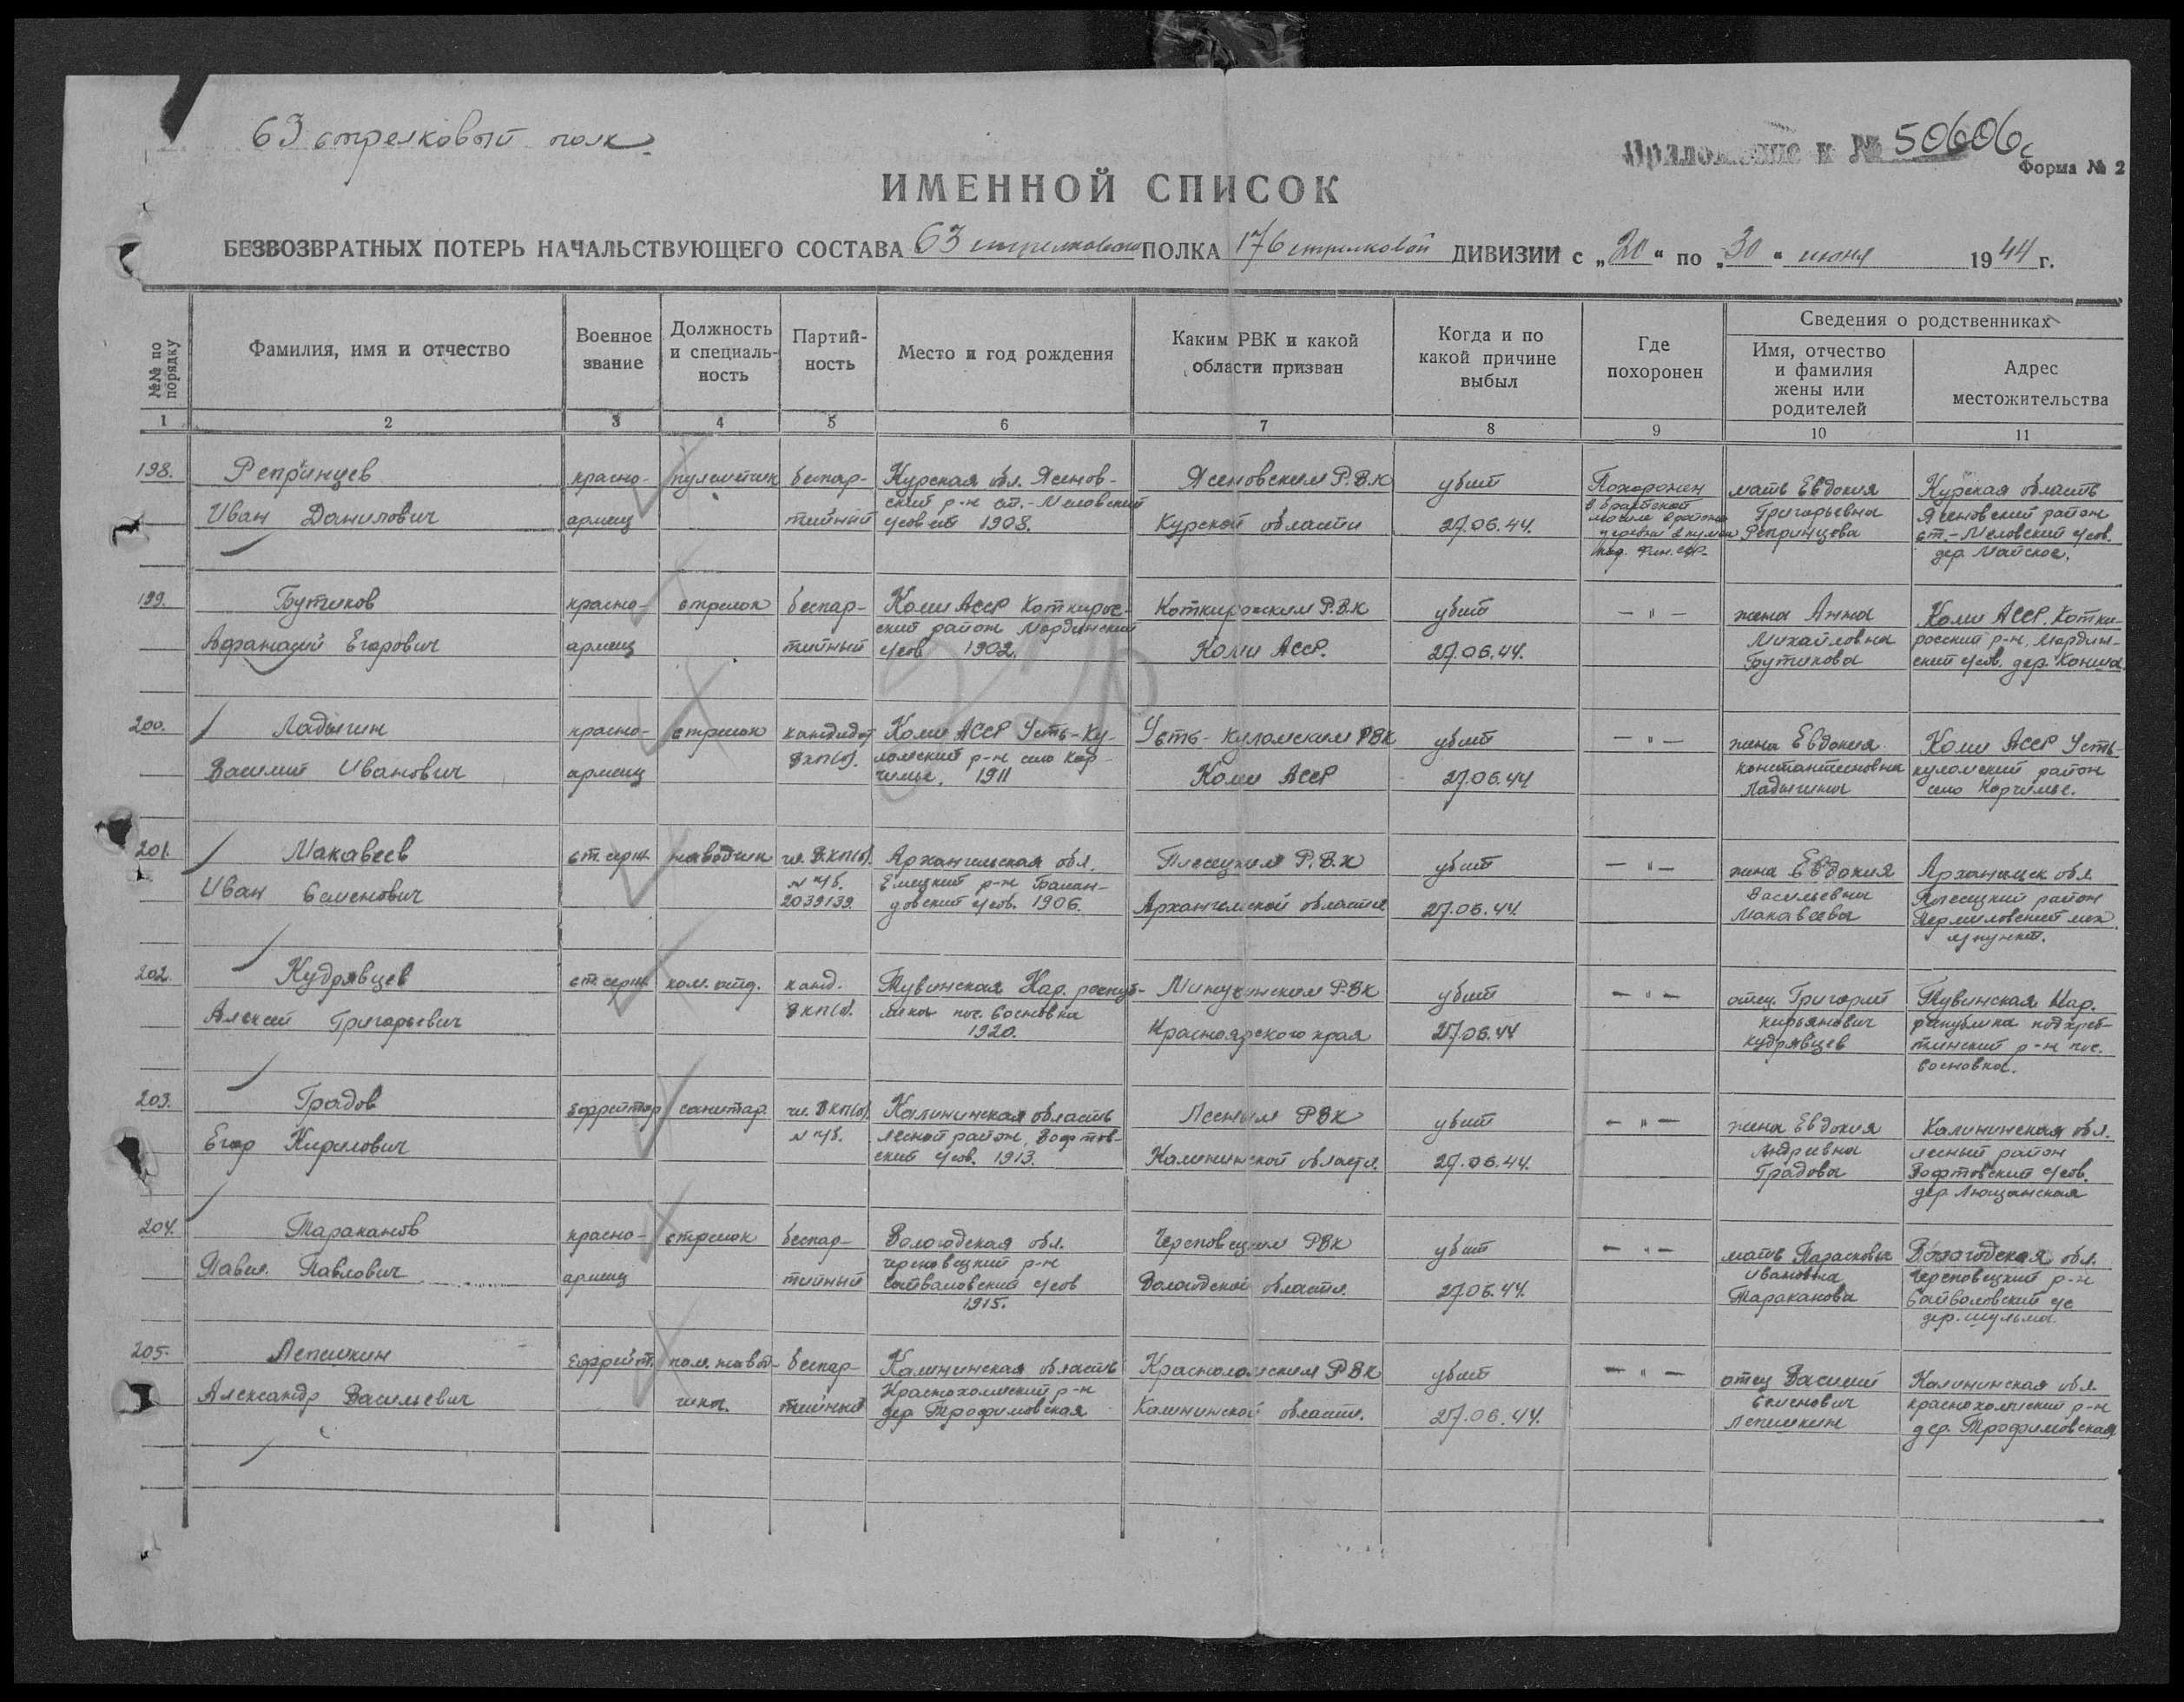 63 стрелковый полк.
Приложение к № 50606с
Форма № 2
ИМЕННОЙ СПИСОК
БЕЗВОЗВРАТНЫХ ПОТЕРЬ НАЧАЛЬСТВУЮЩЕГО СОСТАВА 63 стрелкового ПОЛКА 176 стрелковой ДИВИЗИИ с „20“ по „30“ июня 1944 г.
№№ по порядку
Фамилия, имя и отчество
Военное звание
Должность и специаль-ность
Партий-ность
Место и год рождения
Каким РВК и какой области призван
Когда и по какой причине выбыл
Где похоронен
Сведения о родственниках
Имя, отчество и фамилия жены или родителей
Адрес местожительства
1 2 3 4 5 6 7 8 9 10 11
198. Репринцев
Иван Данилович
красно-
армеец
пулеметчик
беспар-
тийный
Курская обл. Ясенов-
ский р-н ст.-Меловский
с/совет 1908.
Ясеновским Р.В.К
Курской области
убит
27.06.44.
Похоронен
в братской
могиле в районе
деревни
мать Евдокия
Григорьевна
Репринцова
Курская область
Ясеновский район
ст.-Меловский с/сов.
дер. Майское.
199. Бутиков
Афанасий Егорович
красно-
армеец
стрелок
беспар-
тийный
Коми АССР Коткерос-
ский район Мординский
с/сов 1902.
Коткироским Р.В.К
Коми АССР.
убит
27.06.44.
— " —
жена Анна
Михайловна
Бутикова
Коми АССР. Котки-
росский р-н, Мордин-
ский с/сов. дер. Конша
200. Ладыгин
Василий Иванович
красно-
армеец
стрелок
кандидат
ВКП(б).
Коми АССР Усть-Ку-
ломский р-н село Кер-
чимье. 1911
Усть-Куломским РВК
Коми АССР
убит
27.06.44
— " —
жена Евдокия
Константиновна
Ладыгина
Коми АССР Усть-
куломский район
село Керчимье.
201. Макавеев
Иван Семенович
ст. серж.
наводчик
чл. ВКП(б).
№ ч/б.
2039139
Архангельская обл.
Емецкий р-н
с/сов. 1906.
Плесецким Р.В.К
Архангельской области
убит
27.06.44.
— " —
жена Евдокия
Васильевна
Макавеева
Архангельск обл
Плесецкий район
Пермиловский мех
л/пункт.
202. Кудрявцев
Алексей Григорьевич
ст. серж.
ком. отд.
канд.
ВКП(б).
Тувинская Нар. респуб-
лика пос. Сосновка
1920.
Минусинским РВК
Красноярского края
убит
27.06.44
— " —
отец. Григорий
Кирьянович
Кудрявцев
Тувинская Нар.
республика подхреб-
тинский р-н пос.
Сосновка.
203. Градов
Егор Кирилович
Ефрейтор
санитар.
чл. ВКП(б)
№ ч/б.
Калининская область
Лесной район, Вофтов-
ский с/сов. 1913.
Лесным РВК
Калининской област.
убит
27.06.44.
— " —
жена Евдокия
Андреевна
Градова
Калининская обл.
лесный район
Вофтовский с/сов.
дер Лющанская
204. Тараканов
Павел Павлович
красно-
армеец
стрелок
беспар-
тийный
Вологодская обл.
череповецкий р-н
с/сов
1915.
Череповецким РВК
Вологодской области.
убит
27.06.44.
— " —
мать Парасковья
Ивановна
Тараканова
Вологодская обл.
Череповецкий р-н
Сайволовский с/с
дер. Шульма.
205. Лепешкин
Александр Васильевич
Ефрейт.
пом. навод-
чика.
беспар-
тийный
Калининская область
Краснохолмский р-н
дер Трофимовская
Краснохолмским РВК
Калининской области.
убит
27.06.44.
— " —
отец Василий
Семенович
Лепешкин
Калининская обл.
краснохолмский р-н
дер. Трофимовская